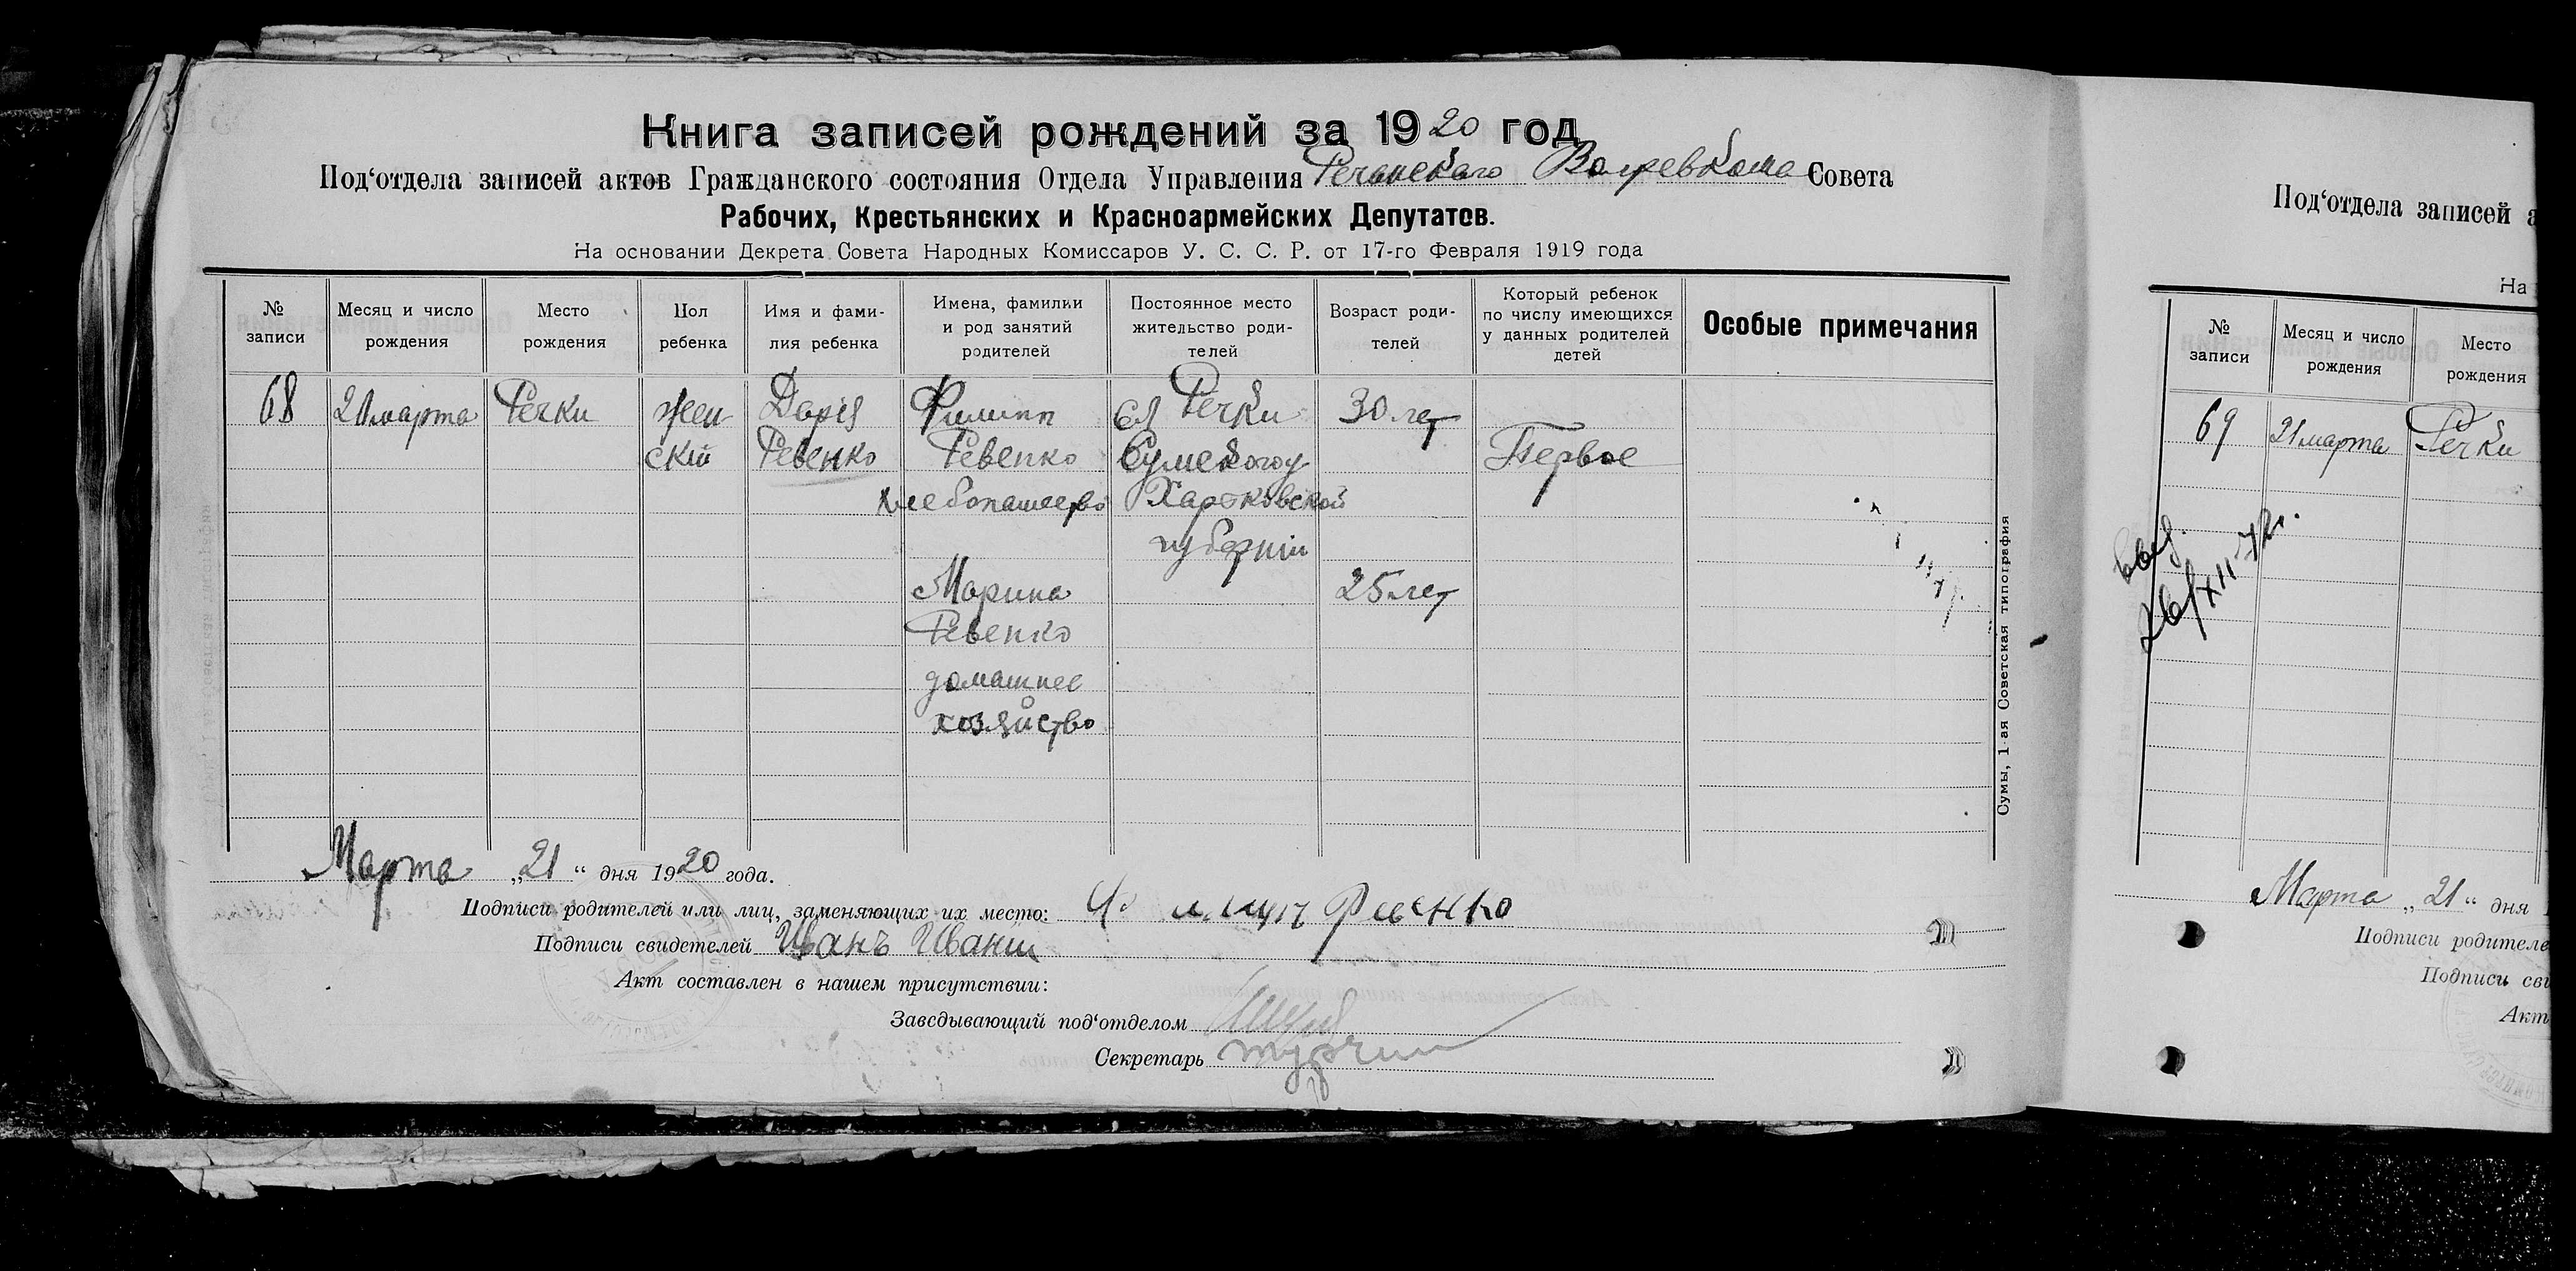 Книга записей рождений за 1920 год
Под‘отдела записей актов Гражданского состояния Отдела Управления Речанскаго Волревкома Совета
Рабочих, Крестьянских и Красноармейских Депутатов.
На основании Декрета Совета Народных Комиссаров У. С. С. Р. от 17-го Февраля 1919 года
№ записи
Месяц и число рождения
Место рождения
Пол ребенка
Имя и фами-
лия ребенка
Имена, фамилии
и род занятий
родителей
Постоянное место
жительство роди-
телей
Возраст роди-
телей
Который ребенок
по числу имеющихся
у данных родителей
детей
Особые примечания
68 21 марта Речки жен Дарія Филипп сл Речки 30 лет
скій Ревенко Ревенко Сумского у Первое
хлебопашество Харьковской
губерніи
Марина 25 лет
Ревенко
домашнее
хозяйство
Сумы, 1-ая Советская типография
Марта „21“ дня 1920 года.
Подписи родителей или лиц, заменяющих их место:
Подписи свидетелей Иванъ
Акт составлен в нашем присутствии:
Заведывающий под‘отделом
Секретарь
Под‘отдела записей а
На
№ записи
Месяц и число рождения
Место рождения
69 21 марта Речки
26/XII-72г.
Марта „21“ дня
Подписи родителе
Подписи сви
Акт